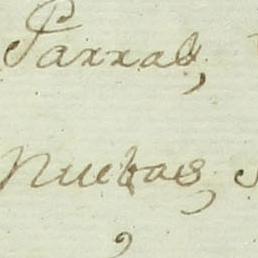 Parras,
Nuebas,